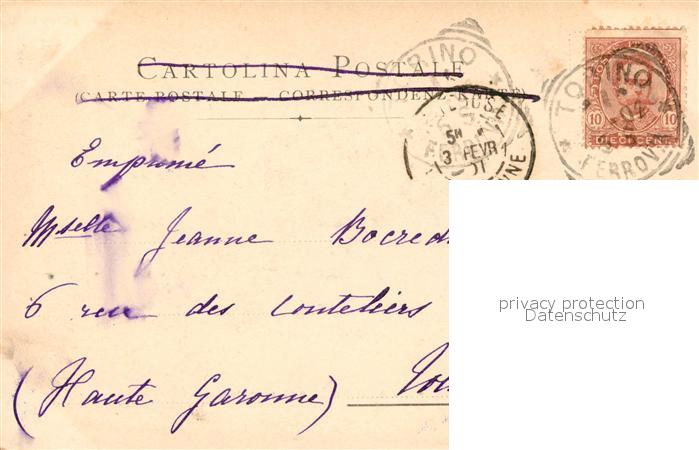 CARTOLINA POSTALE
(CARTE POSTALE — CORRESPONDENZ-KARTE)
TORINO
FERROVIA
TORINO
FERROV
10 10
5H
3 FEVR
01
Emprimé
Mselle Jeanne Bocred
6 rue des Couteliers
(Haute Garonne) Tou
privacy protection
Datenschutz